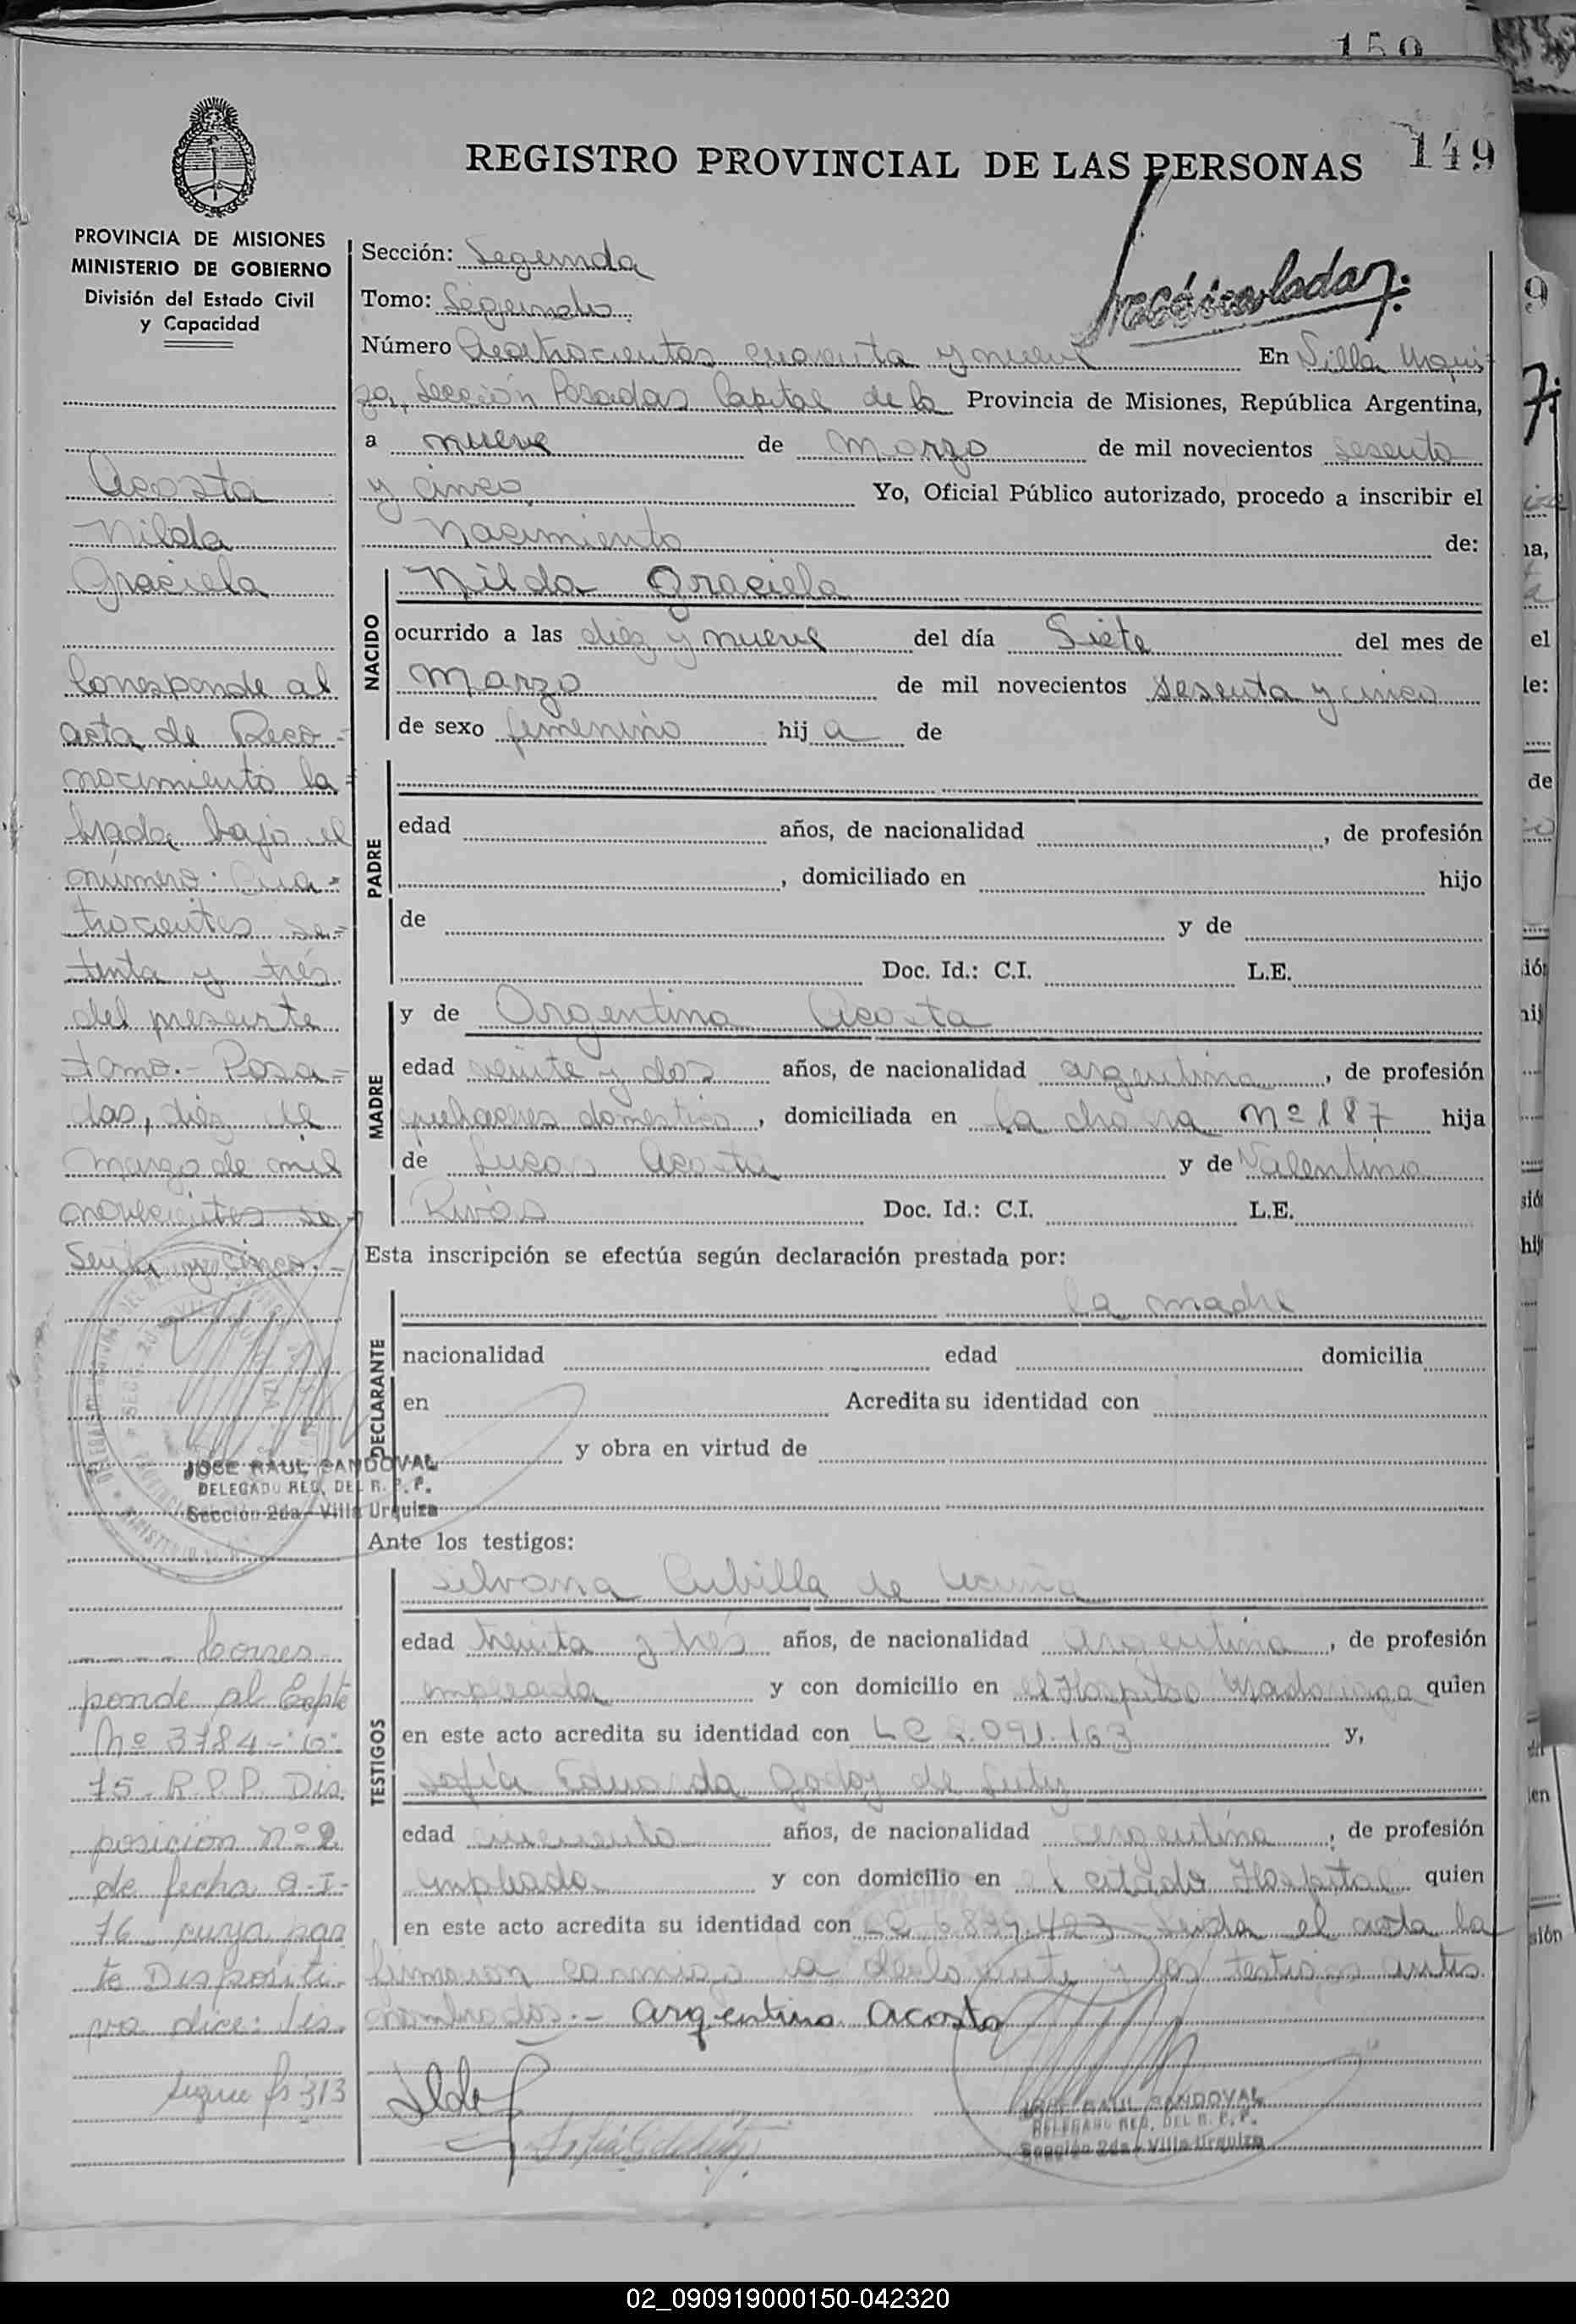 150
149
REGISTRO PROVINCIAL DE LAS PERSONAS
PROVINCIA DE MISIONES
MINISTERIO DE GOBIERNO
División del Estado Civil
y Capacidad
Acosta
Nilda
Graciela
Corresponde al
acta de Reco-
nocimiento la=
brada bajo el
número: Cua-
trocientos se=
tenta y trés
del presente
tomo.- Posa=
das, diez de
Marzo de mil
novecientos se
senta y cinco.-
JOSE RAUL SANDOVAL
DELEGADO REG. DEL R. P. P.
Sección 2da - Villa Urquiza
---- Corres
ponde al Expte
Nº 3784-"0"
75- R.P.P. Dis
posicion Nº 2
de fecha 9-I-
76 cuya par
te Dispositi-
va dice: Vis
sigue fs 313
Sección: Segunda
Tomo: Segundo
Número Cuatrocientos cuarenta y nueve En Villa Urqui-
za, Sección Posadas Capital de la Provincia de Misiones, República Argentina,
a nueve de Marzo de mil novecientos sesenta
y cinco Yo, Oficial Público autorizado, procedo a inscribir el
Nacimiento de:
NACIDO
Nilda Graciela
ocurrido a las diez y nueve del día Siete del mes de
Marzo de mil novecientos sesenta y cinco
de sexo femenino hija de
PADRE
edad años, de nacionalidad , de profesión
, domiciliado en hijo
de y de
Doc. Id.: C.I. L.E.
MADRE
y de Argentina Acosta
edad veinte y dos años, de nacionalidad argentina , de profesión
quehaceres domestico , domiciliada en la chacra Nº 187 hija
de Lucas Acosta y de Valentina
Rivas Doc. Id.: C.I. L.E.
Esta inscripción se efectúa según declaración prestada por:
la madre
DECLARANTE
nacionalidad edad domicilia
en Acredita su identidad con
y obra en virtud de
Ante los testigos:
TESTIGOS
Silvana Cubilla de Acuña
edad treinta y trés años, de nacionalidad argentina , de profesión
empleada y con domicilio en el Hospital Madariaga quien
en este acto acredita su identidad con LC .091.163 y,
Sofía Eduarda Godoy de
edad cincuenta años, de nacionalidad argentina , de profesión
empleada y con domicilio en el citado Hospital quien
en este acto acredita su identidad con LC Leida el acta la
firmaron conmigo la declarante y los testigos antes
nombrados.- Argentina Acosta
JOSE RAUL SANDOVAL
DELEGADO REG. DEL R. P. P.
Sección 2da - Villa Urquiza
02_090919000150-042320